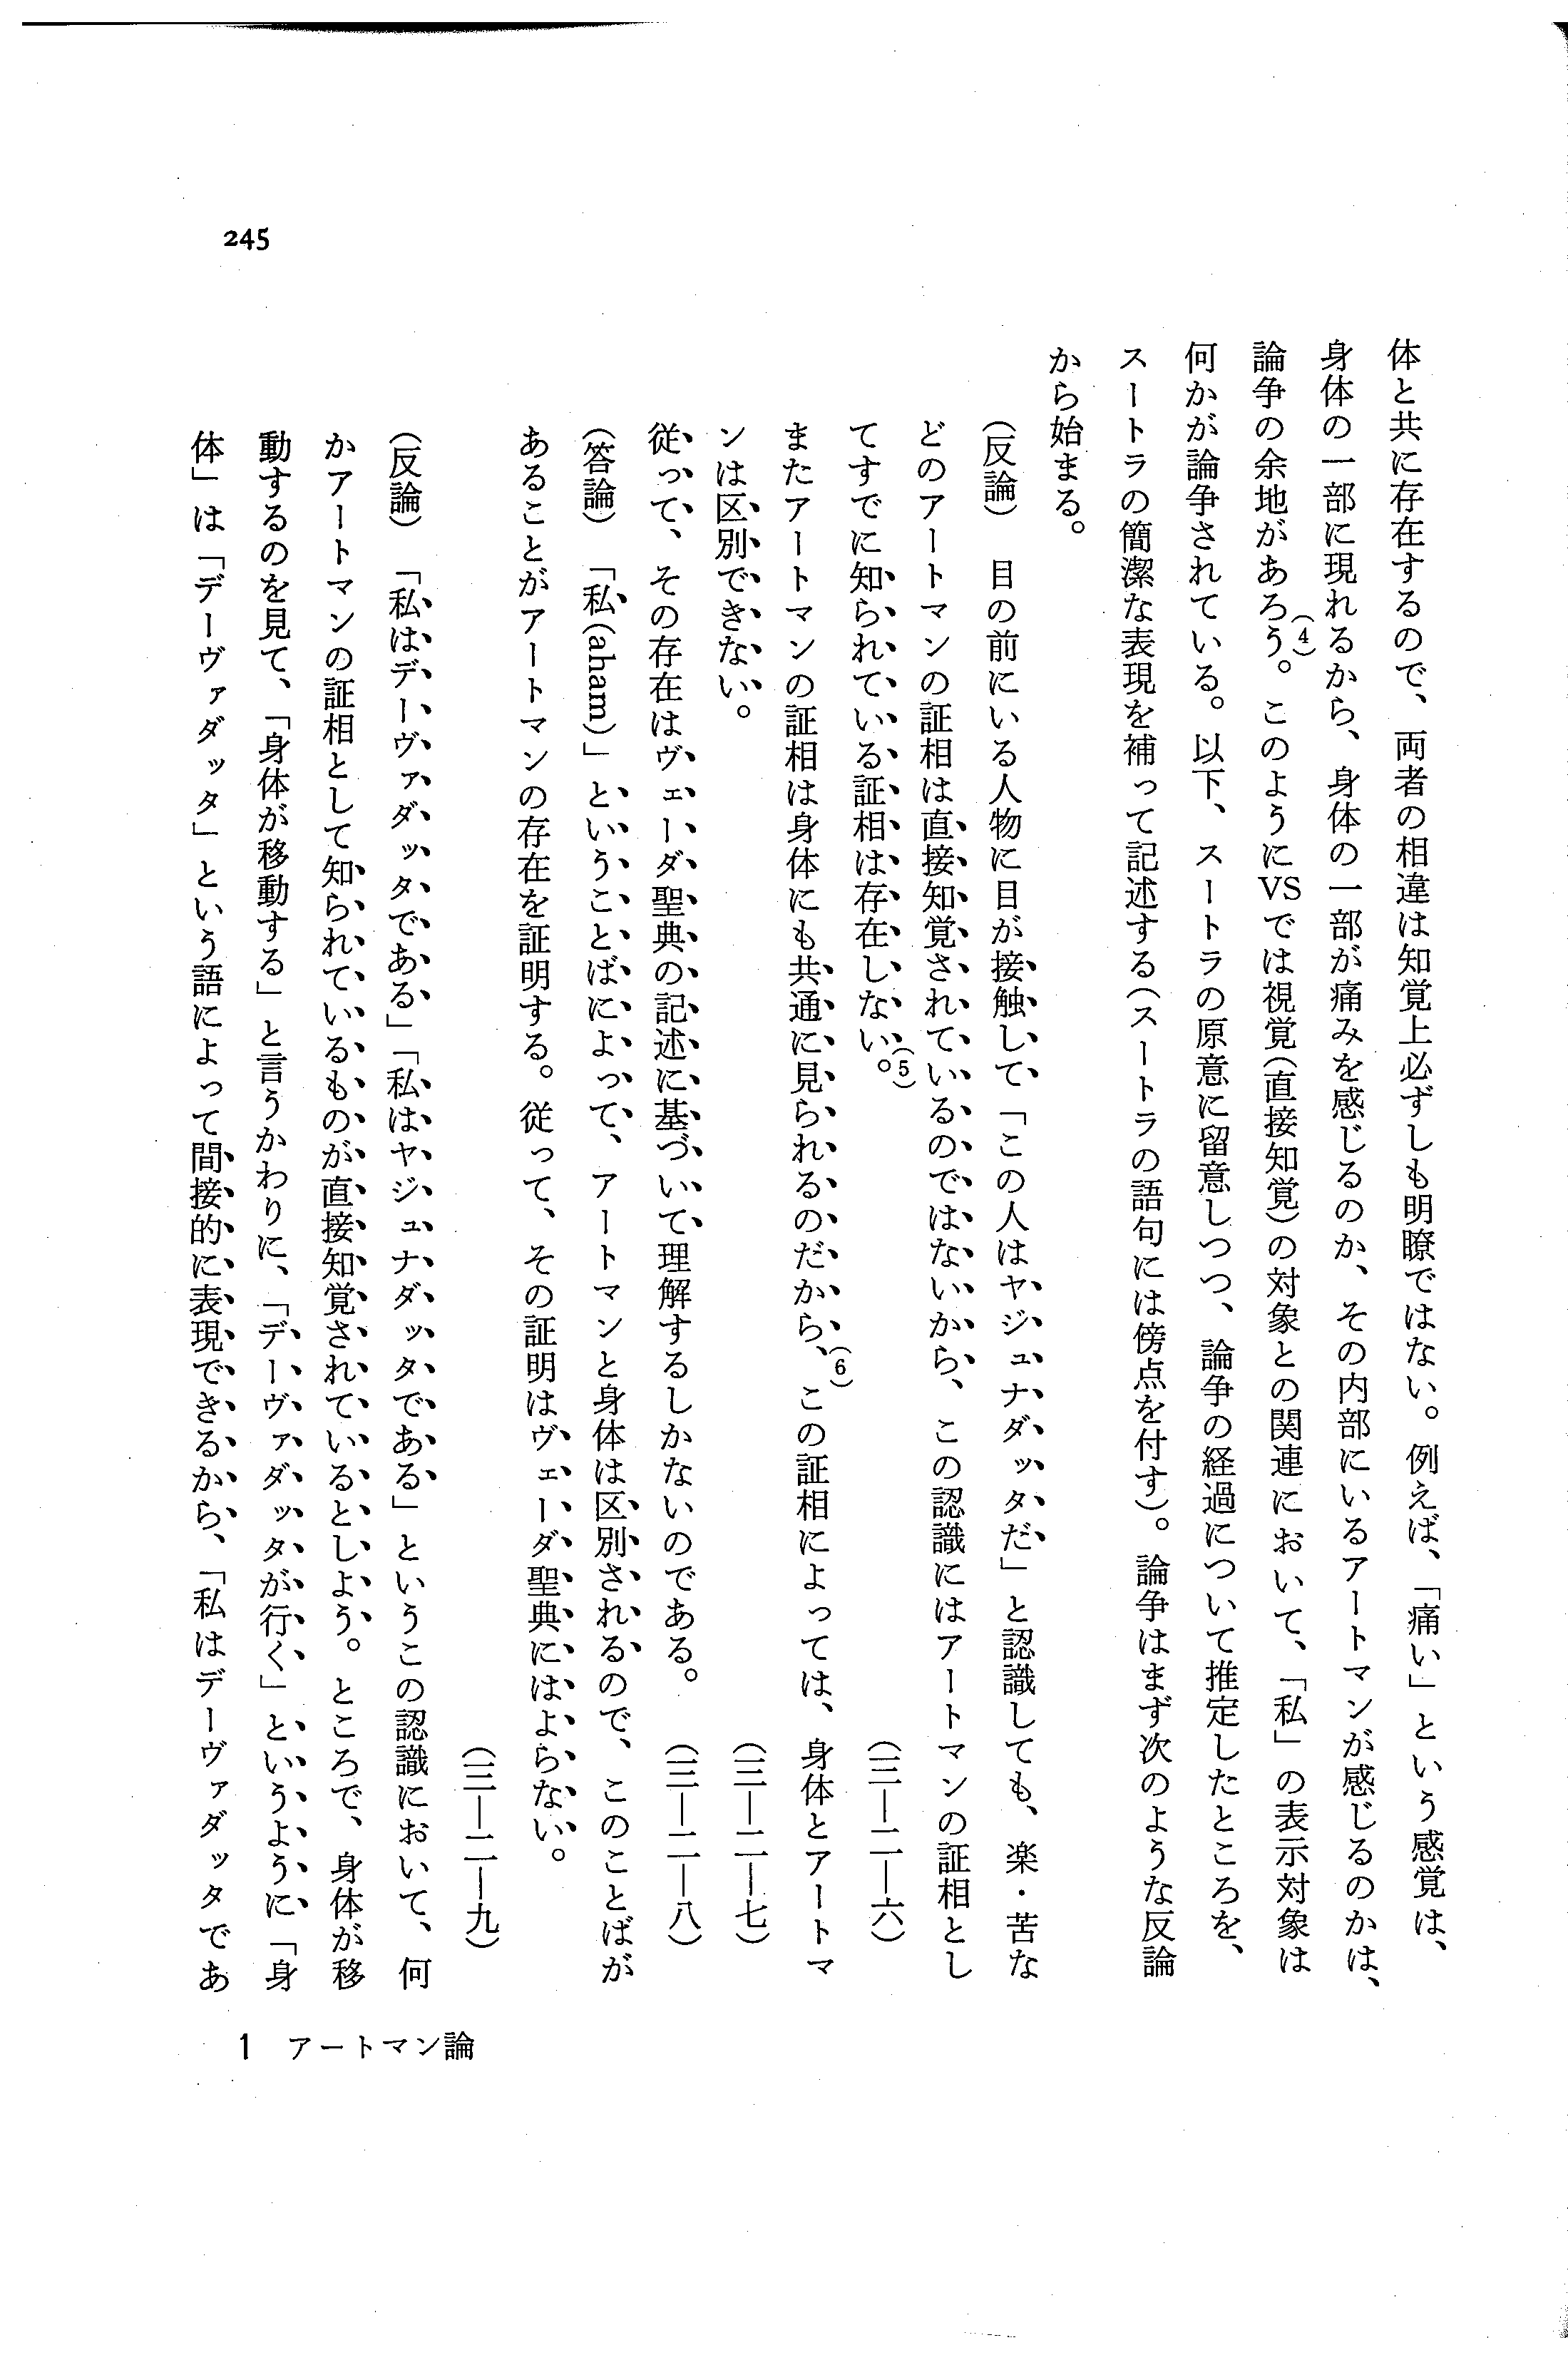 体と共に存在するので、両者の相違は知覚上必ずしも明瞭ではない。例えば、「痛い」という感覚は、
身体の一部に現れるから、身体の一部が痛みを感じるのか、その内部にいるアートマンが感じるのかは、
論争の余地があろう(4)。このようにVSでは視覚(直接知覚)の対象との関連において、「私」の表示対象は
何かが論争されている。以下、スートラの原意に留意しつつ、論争の経過について推定したところを、
スートラの簡潔な表現を補って記述する(スートラの語句には傍点を付す)。論争はまず次のような反論
から始まる。
(反論) 目の前にいる人物に目が接触して「この人はヤジュナダッタだ」と認識しても、楽・苦な
どのアートマンの証相は直接知覚されているのではないから、この認識にはアートマンの証相とし
てすでに知られている証相は存在しない。(5) (三―二―六)
またアートマンの証相は身体にも共通に見られるのだから、(6)この証相によっては、身体とアートマ
ンは区別できない。 (三―二―七)
従って、その存在はヴェーダ聖典の記述に基づいて理解するしかないのである。 (三―二―八)
(答論) 「私(aham)」ということばによって、アートマンと身体は区別されるので、このことばが
あることがアートマンの存在を証明する。従って、その証明はヴェーダ聖典にはよらない。
(三―二―九)
(反論) 「私はデーヴァダッタである」「私はヤジュナダッタである」というこの認識において、何
かアートマンの証相として知られているものが直接知覚されているとしよう。ところで、身体が移
動するのを見て、「身体が移動する」と言うかわりに、「デーヴァダッタが行く」というように「身
体」は「デーヴァダッタ」という語によって間接的に表現できるから、「私はデーヴァダッタであ
1 アートマン論
245